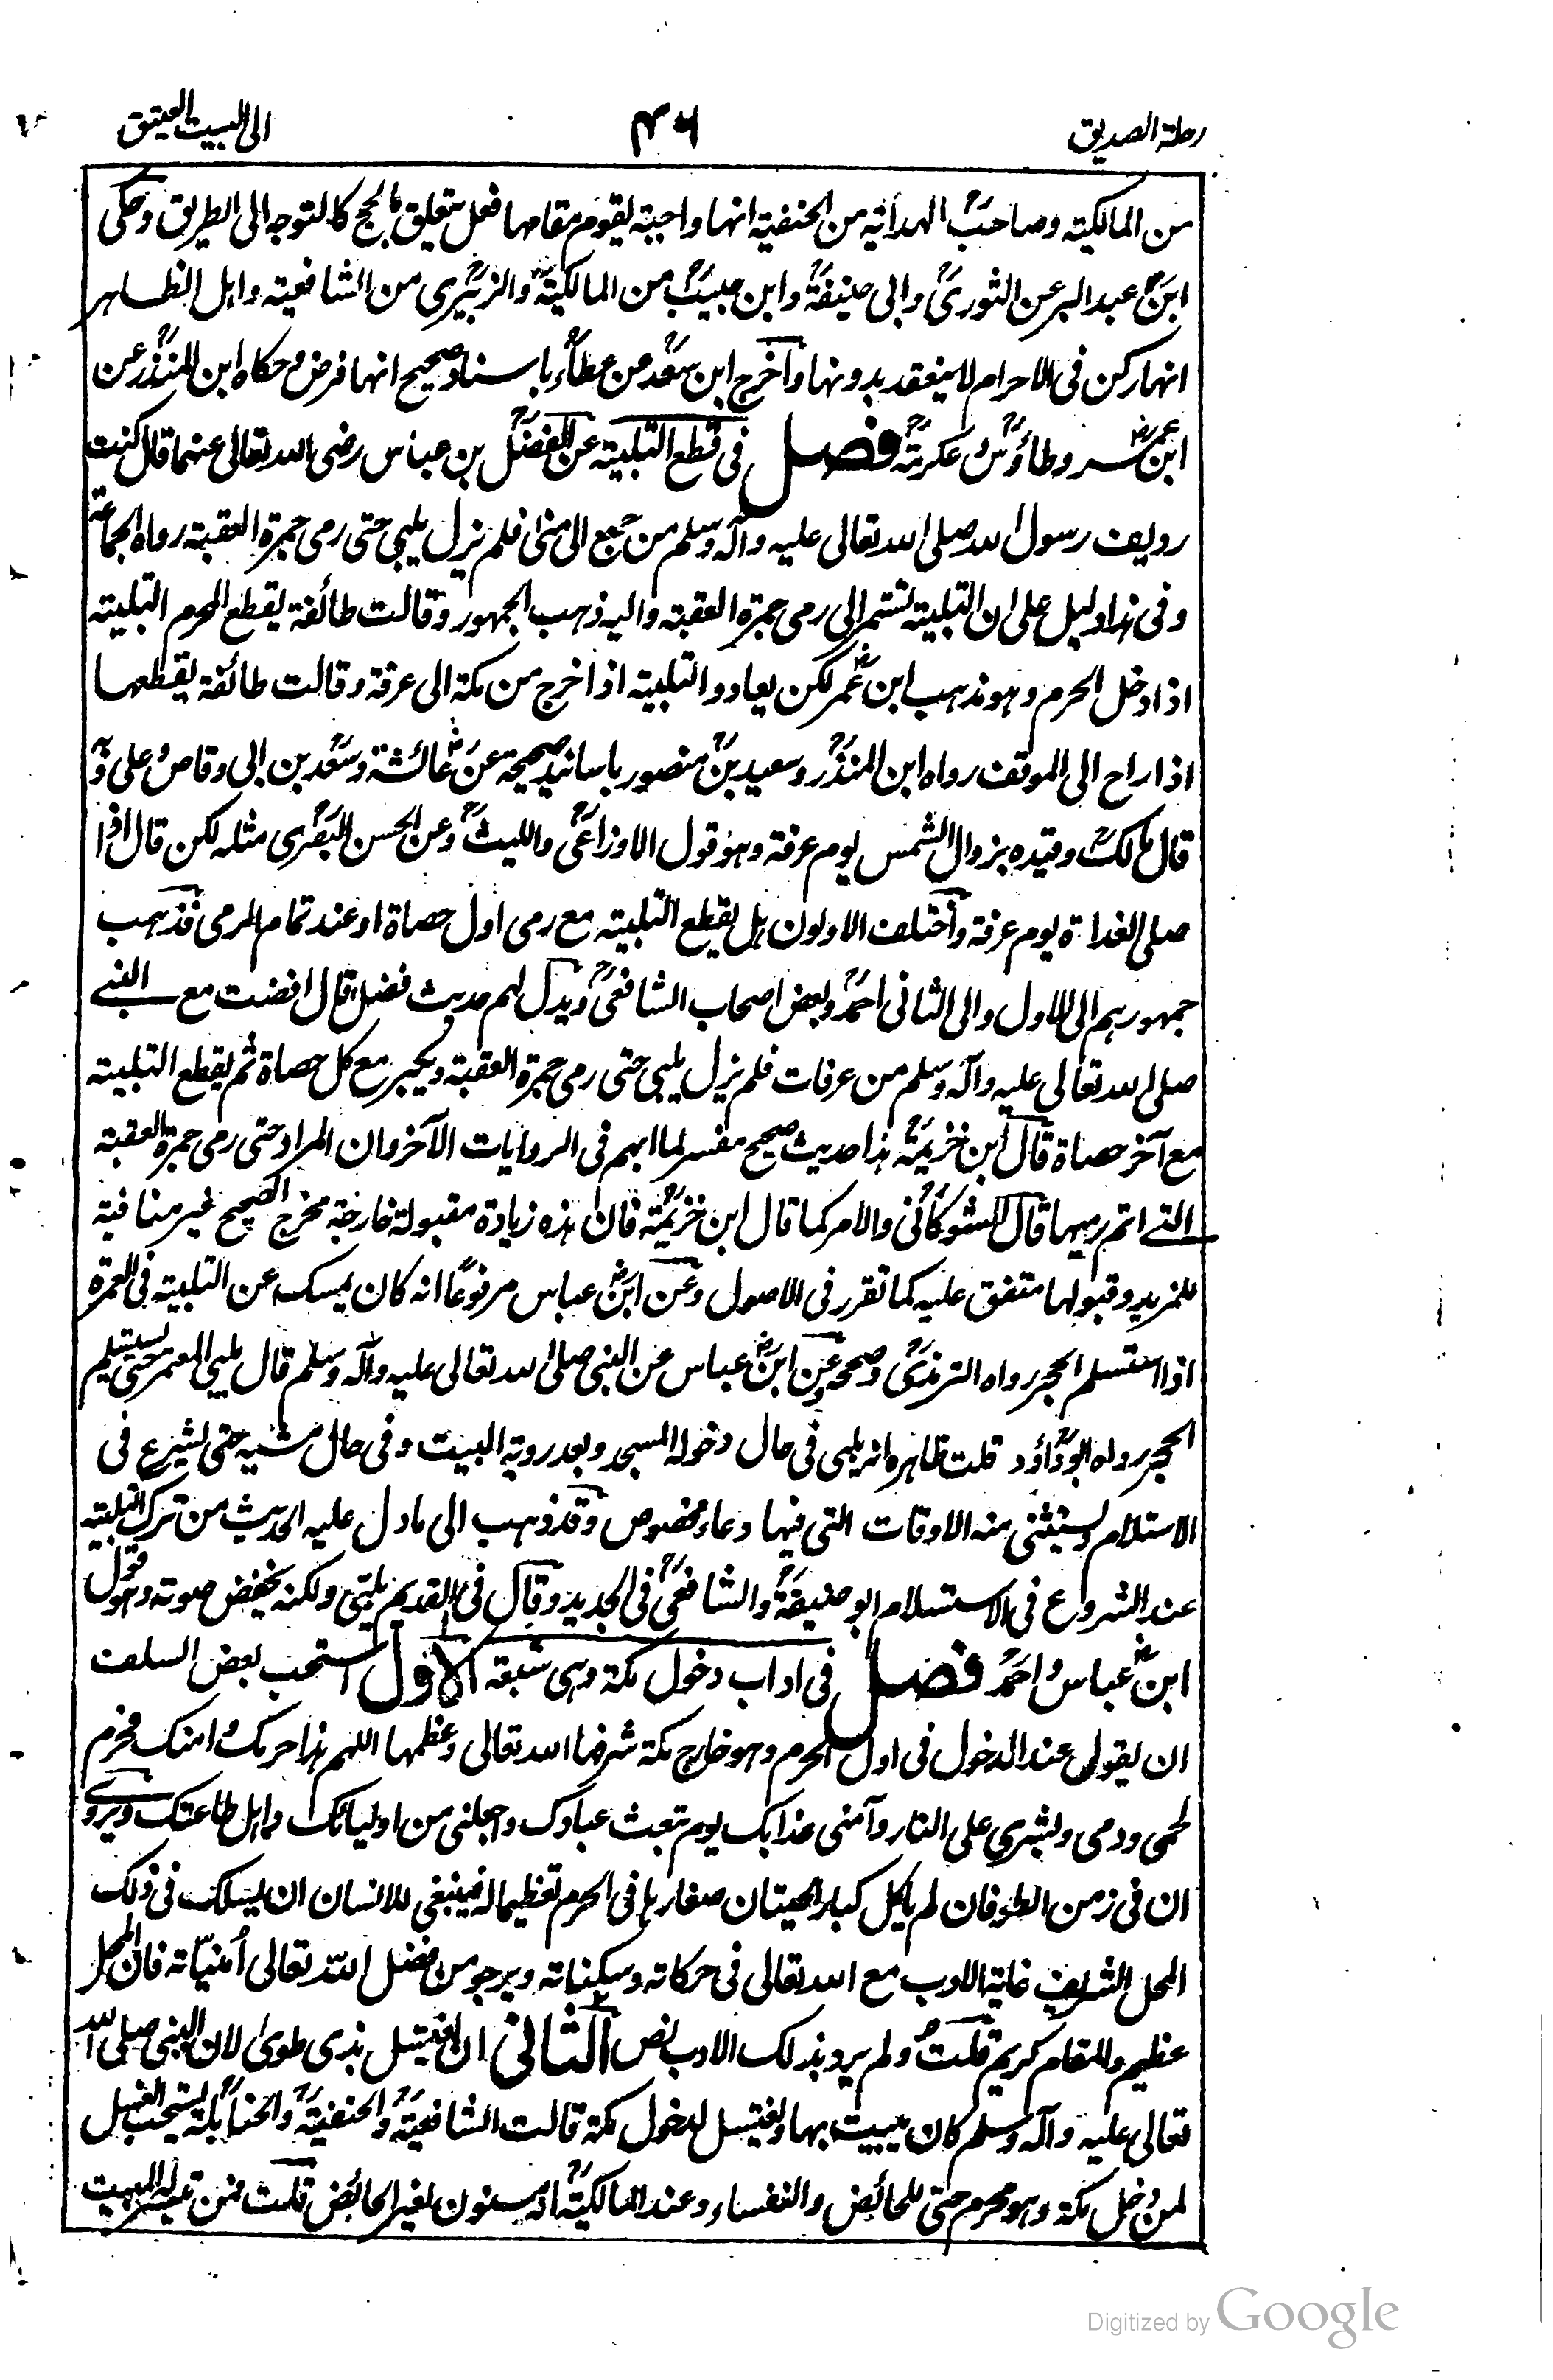 رحلة الصديق
٤٦
الى البيت العتيق
من المالكية وصاحب الهداية من الحنفية انها واجبة يقوم مقامها فعل يتعلق بالحج كالتوجه الى الطريق وحكى
ابن عبد البر عن الثوري وابي حنيفة وابن حبيب من المالكية والزبيري من الشافعية واهل الظاهر
انها ركن في الاحرام لا ينعقد بدونها واخرج ابن سعد عن عطاء باسناد صحيح انها فرض وحكاه ابن المنذر عن
ابن عمر وطاؤس وعكرمة فصل في قطع التلبية عن الفضل بن عباس رضى الله تعالى عنهما قال كنت
رديف رسول الله صلى الله تعالى عليه وآله وسلم من جمع الى منى فلم يزل يلبي حتى رمى جمرة العقبة رواه الجماعة
وفي هذا دليل على ان التلبية تستمر الى رمى جمرة العقبة واليه ذهب الجمهور وقالت طائفة يقطع المحرم التلبية
اذا دخل الحرم وهو مذهب ابن عمر لكن يعاود التلبية اذا خرج من مكة الى عرفة وقالت طائفة يقطعها
اذا راح الى الموقف رواه ابن المنذر وسعيد بن منصور باسانيد صحيحة عن عائشة وسعد بن ابي وقاص وعلى وبه
قال مالك وقيده بزوال الشمس يوم عرفة وهو قول الاوزاعي والليث وعن الحسن البصري مثله لكن قال اذا
صلى الغداة يوم عرفة واختلف الاولون هل يقطع التلبية مع رمى اول حصاة او عند تمام الرمى فذهب
جمهورهم الى الاول والى الثاني احمد وبعض اصحاب الشافعي ويدل لهم حديث فضل قال افضت مع النبي
صلى الله تعالى عليه وآله وسلم من عرفات فلم يزل يلبي حتى رمى جمرة العقبة ويكبر مع كل حصاة ثم يقطع التلبية
مع آخر حصاة قال ابن خزيمة هذا حديث صحيح مفسر لما ابهم في الروايات الآخر وان المراد حتى رمى جمرة العقبة
التي اتم رميها قال الشوكاني والامر كما قال ابن خزيمة فان هذه زيادة مقبولة خارجة مخرج الصحيح غير منافية
للمزيد وقبولها متفق عليه كما تقرر في الاصول وعن ابن عباس مرفوعًا انه كان يمسك عن التلبية في العمرة
اذا استلم الحجر رواه الترمذي وصححه وعن ابن عباس عن النبي صلى الله تعالى عليه وآله وسلم قال يلبي المعتمر حتى يستلم
الحجر رواه ابو داؤد قلت ظاهره انه يلبي في حال دخوله المسجد وبعد روية البيت وفي حال مشيه حتى يشرع في
الاستلام ويستثنى منه الاوقات التي فيها دعاء مخصوص وقد ذهب الى ما دل عليه الحديث من ترك التلبية
عند الشروع في الاستلام ابو حنيفة والشافعي في الجديد وقال في القديم يلبي ولكنه يخفض صوته وهو قول
ابن عباس واحمد فصل في اداب دخول مكة وهى سبعة الاول استحب بعض السلف
ان يقول عند الدخول في اول الحرم وهو خارج مكة شرفها الله تعالى وعظمها اللهم هذا حرمك وامنك فحرم
لحمى ودمى وبشرى على النار وآمنى عذابك يوم تبعث عبادك واجعلنى من اوليائك واهل طاعتك ويروى
ان في زمن الطوفان لم يأكل كبار الحيتان صغارها في الحرم تعظيما له فينبغي للانسان ان يسلك في ذلك
المحل الشريف غاية الادب مع الله تعالى في حركاته وسكناته ويرجو من فضل الله تعالى أمنياته فان المحل
عظيم والمقام كريم قلت ولم يرد بذلك الادب نص الثاني ان يغتسل بذى طوى لان النبي صلى الله
تعالى عليه وآله وسلم كان يبيت بها ويغتسل لدخول مكة قالت الشافعية والحنفية والحنابلة يستحب الغسل
لمن دخل مكة وهو محرم حتى للحائض والنفساء وعند المالكية انه مسنون لغير الحائض قلت فمن تيسر له المبيت
Digitized by Google